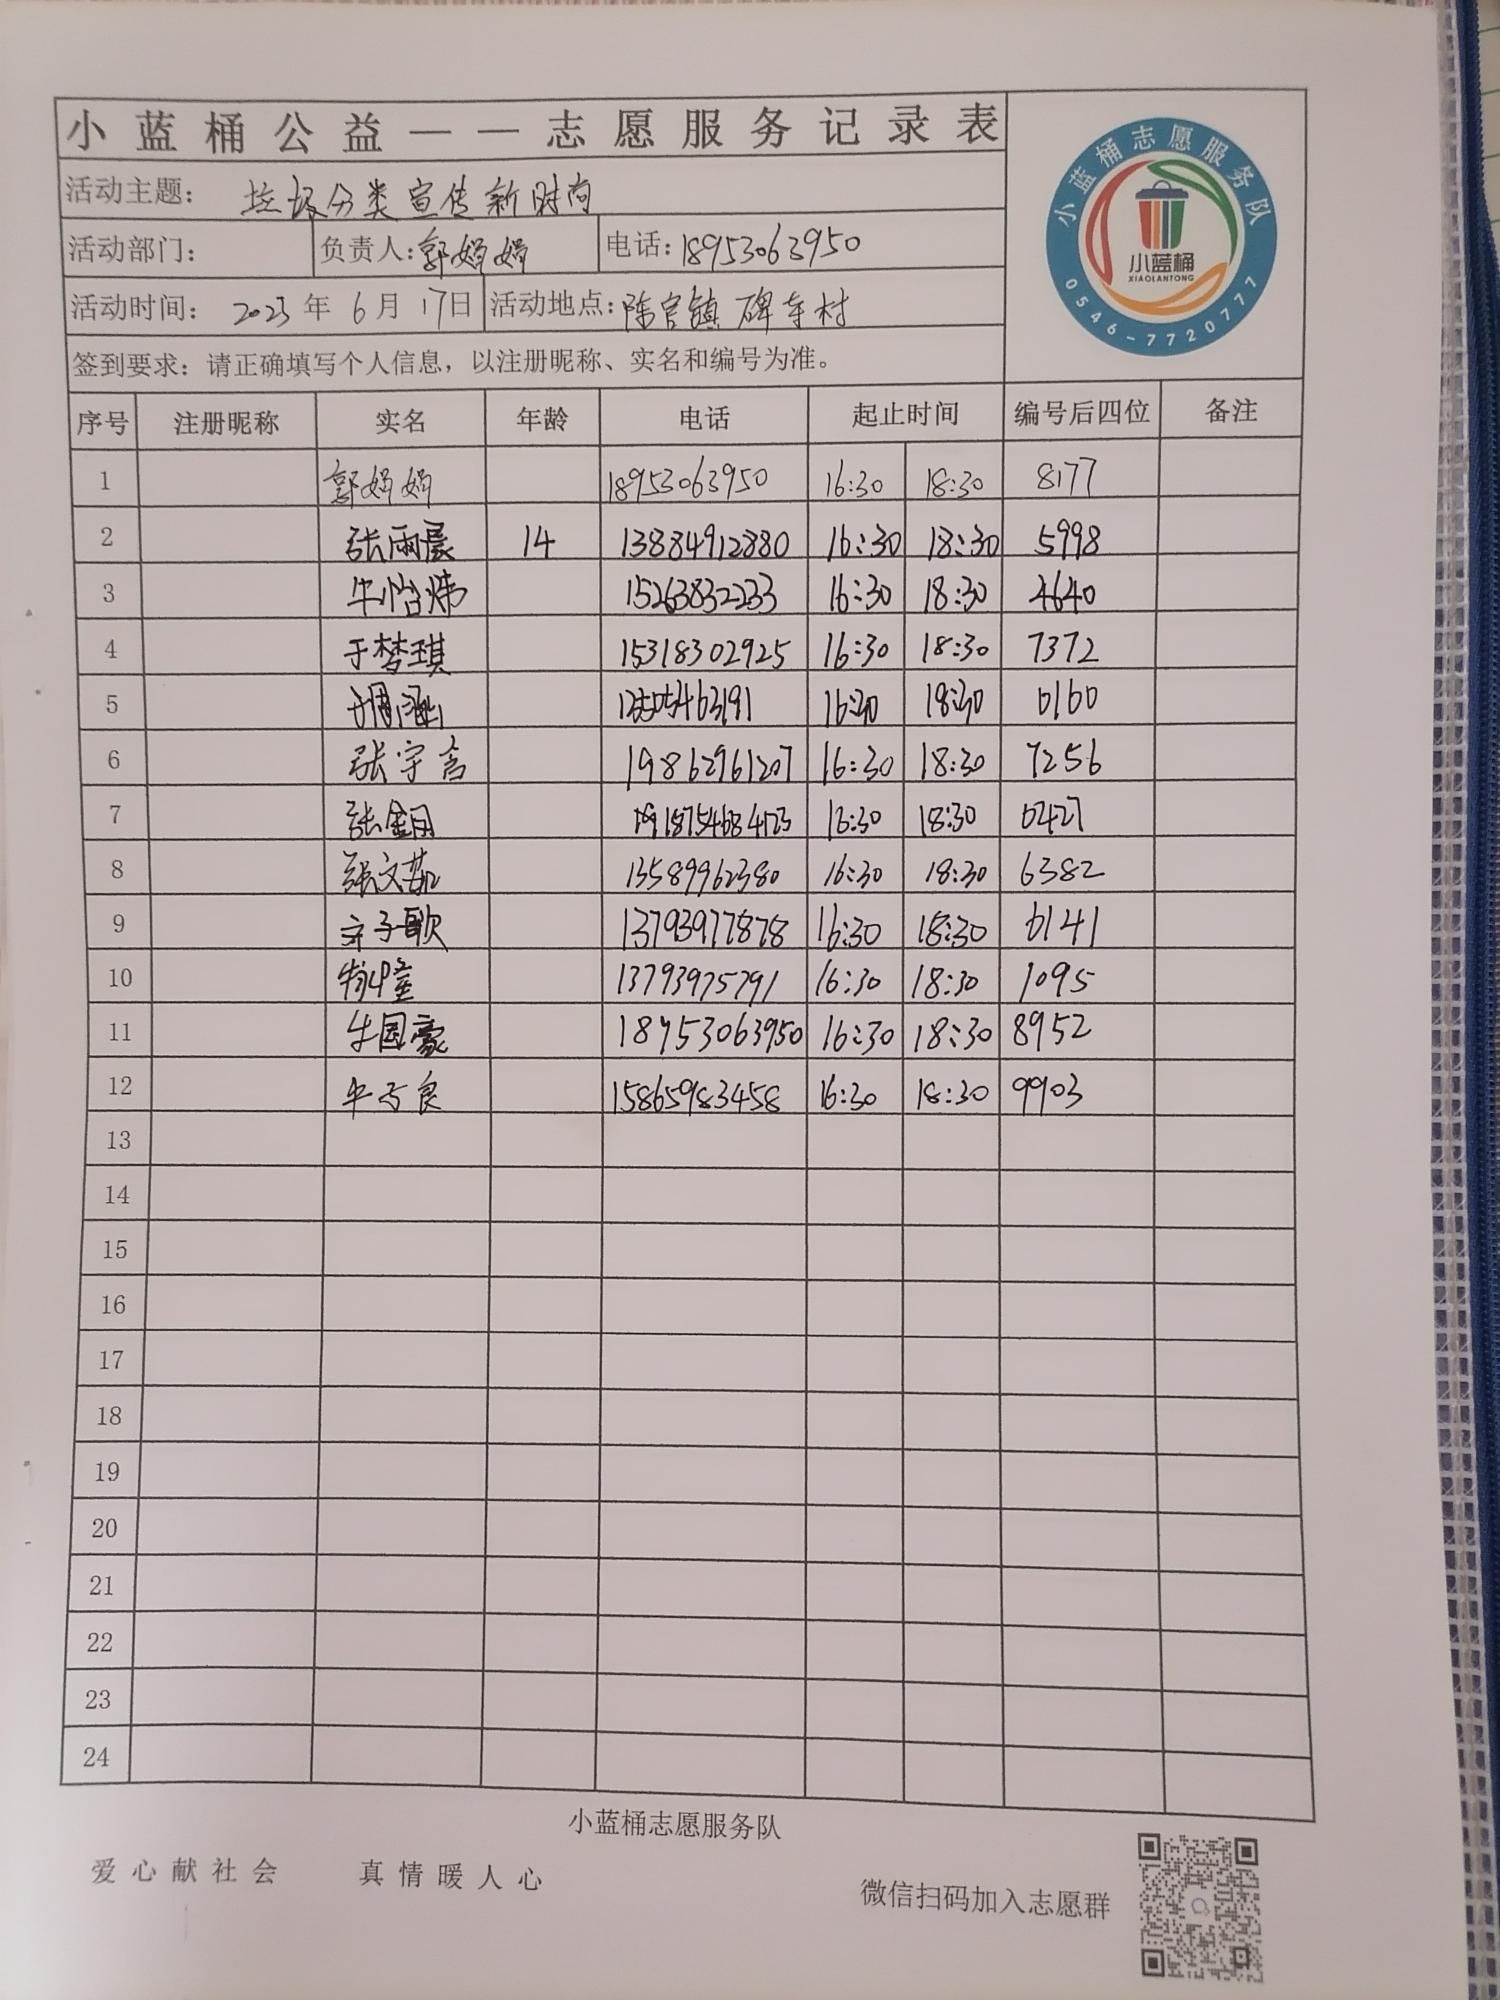 小蓝桶公益——志愿服务记录表
小蓝桶志愿服务队
小蓝桶
XIAOLANTONG
0546-7720777
活动主题： 垃圾分类宣传新时尚
活动部门： 负责人：郭娟娟 电话：18953063950
活动时间： 2023年6月17日 活动地点：陈官镇碑寺村
签到要求：请正确填写个人信息，以注册昵称、实名和编号为准。
序号 注册昵称 实名 年龄 电话 起止时间 编号后四位 备注
1 郭娟娟 18953063950 16:30 18:30 8177
2 张雨晨 14 13884912880 16:30 18:30 5998
3 牛怡炜 15263832233 16:30 18:30 4640
4 于梦琪 15318302925 16:30 18:30 7372
5 16:30 18:30 0160
6 张宇言 19862961207 16:30 18:30 7256
7 16:30 18:30 0427
8 张文茹 13589962380 16:30 18:30 6382
9 子歌 13793977878 16:30 18:30 0141
10 13793975791 16:30 18:30 1095
11 牛国豪 18953063950 16:30 18:30 8952
12 15865983458 16:30 18:30 9903
13
14
15
16
17
18
19
20
21
22
23
24
小蓝桶志愿服务队
爱心献社会 真情暖人心
微信扫码加入志愿群